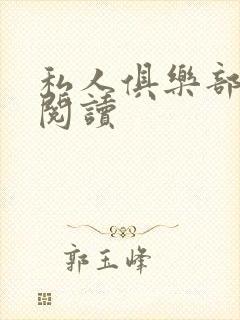 私人俱樂部
閱讀
郭玉峰